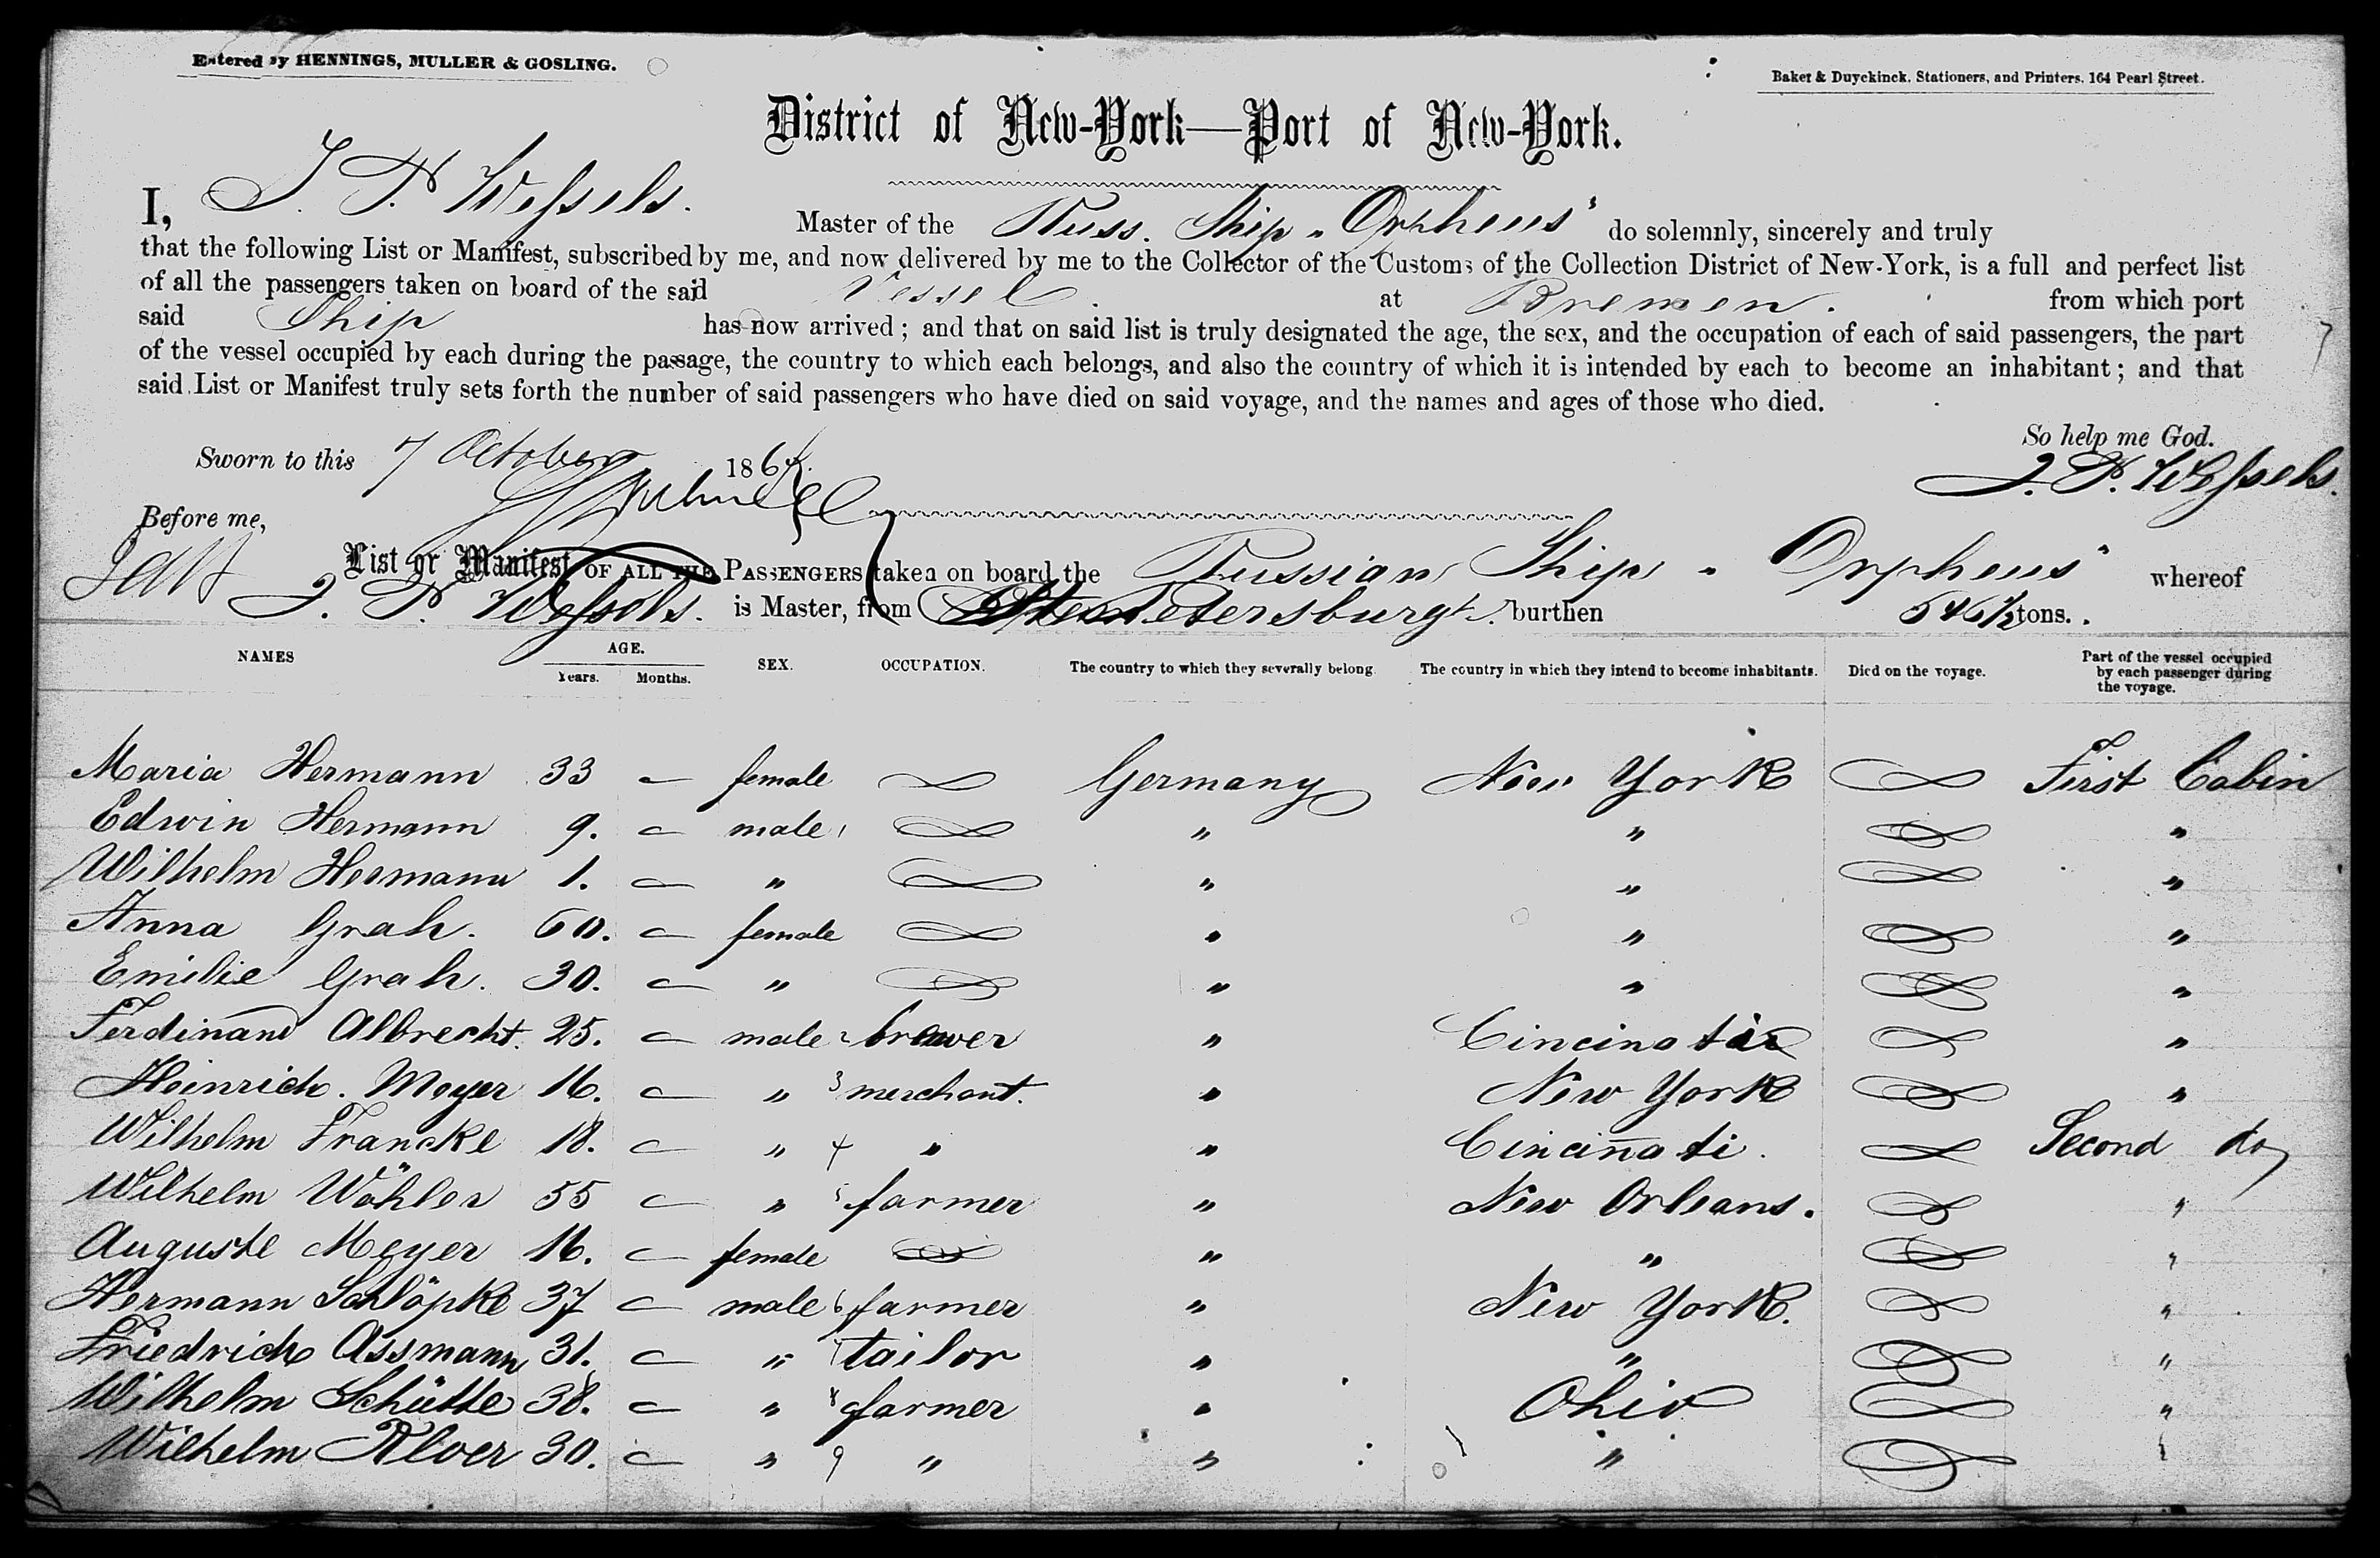 Entered by HENNINGS, MULLER & GOSLING.
Baker & Duyckinck, Stationers, and Printers, 164 Pearl Street.
District of New-York—Port of New-York.
I, J. P. Wessels. Master of the Russ. Ship „ Orpheus" do solemnly, sincerely and truly
that the following List or Manifest, subscribed by me, and now delivered by me to the Collector of the Customs of the Collection District of New-York, is a full and perfect list
of all the passengers taken on board of the said Vessel. at Bremen. from which port
said Ship has now arrived; and that on said list is truly designated the age, the sex, and the occupation of each of said passengers, the part
of the vessel occupied by each during the passage, the country to which each belongs, and also the country of which it is intended by each to become an inhabitant; and that
said List or Manifest truly sets forth the number of said passengers who have died on said voyage, and the names and ages of those who died.
So help me God.
Sworn to this 7 October 186
J. P. Wessels.
Before me,
List or Manifest OF ALL THE PASSENGERS taken on board the Russian Ship „ Orpheus" whereof
J. P. Wessels. is Master, from Petersburgh. burthen 546½ tons.
NAMES AGE. Years. Months. SEX. OCCUPATION. The country to which they severally belong. The country in which they intend to become inhabitants. Died on the voyage. Part of the vessel occupied by each passenger during the voyage.
Maria Hermann 33 — female Germany New York First Cabin
Edwin Hermann 9. — male 1 " " "
Wilhelm Hermann 1. — " " " "
Anna Grah. 60. — female " " "
Emilie Grah. 30. — " " " "
Ferdinand Albrecht. 25. — male 2 brower " Cincinati "
Heinrich. Meyer 16. — " 3 merchant. " New York "
Wilhelm Francke 18. — " 4 " " Cincinati. Second do
Wilhelm Wöhler 55 — " 5 farmer " New Orleans. "
Auguste Meyer 16. — female " " "
Hermann Schlöpke 37 — male 6 farmer " New York. "
Friedrich Assmann 31. — " 7 tailor " " "
Wilhelm Schütte 38. — " 8 farmer " Ohio "
Wilhelm Alver 30. — " 9 " " " "